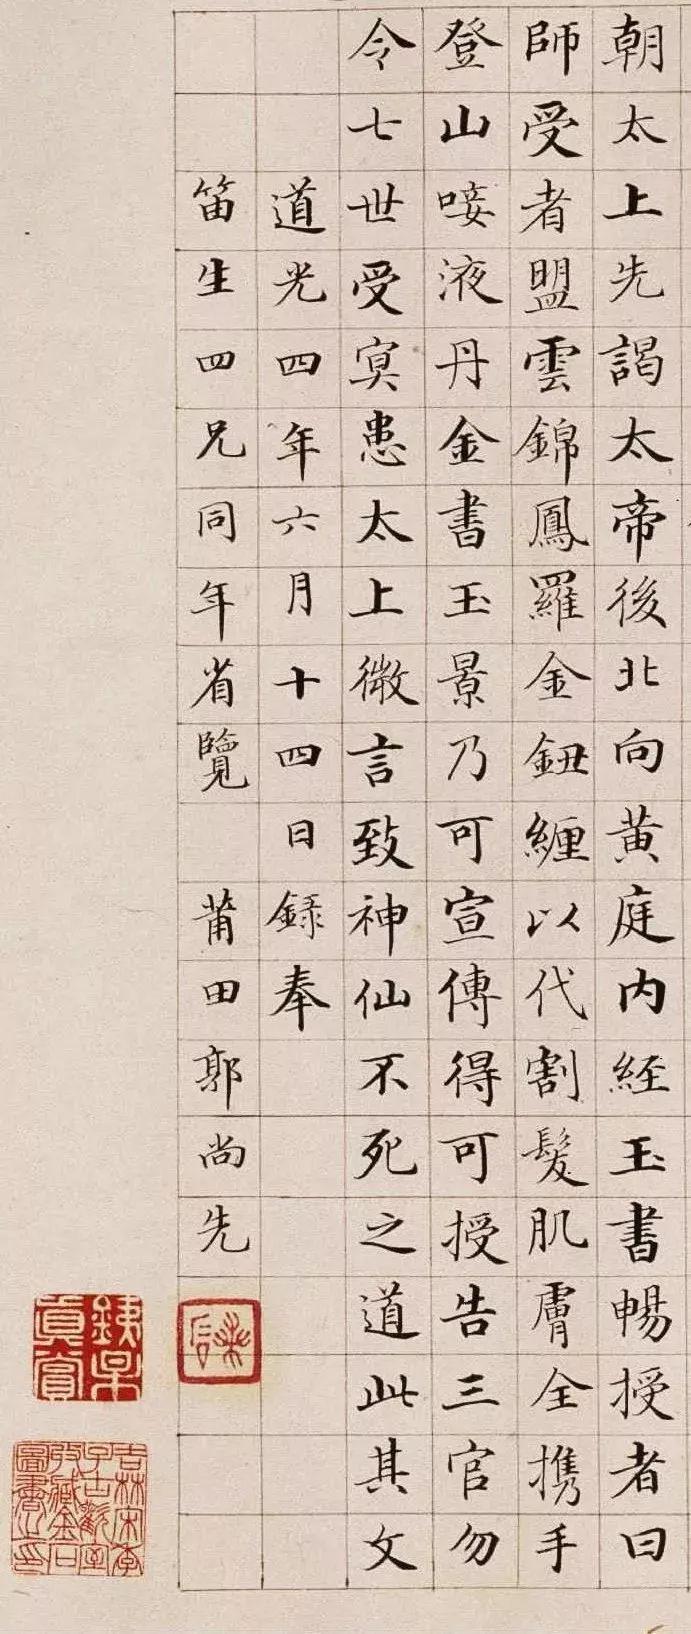 朝太上先謁太帝後北向黄庭内經玉書暢授者曰
師受者盟雲錦鳳羅金鈕纒以代割髮肌膚全携手
登山唼液丹金書玉景乃可宣傳得可授告三官勿
令七世受冥患太上微言致神仙不死之道此其文
道光四年六月十四日錄奉
笛生四兄同年省覽 莆田郭尚先
吉林宋季子古歡室收藏金石圖書之印